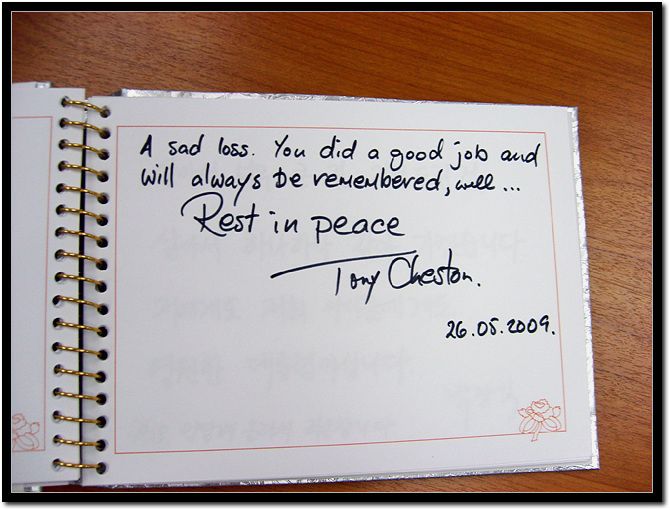 A sad loss. You did a good job and
will always be remembered, well ...
Rest in peace
Tony Cheston.
26.05.2009.